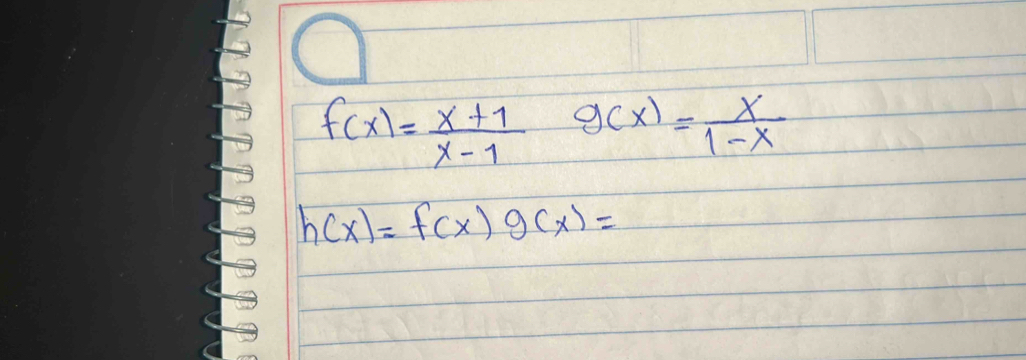 f(x) = \frac{x+1}{x-1}   g(x) = \frac{x}{1-x}
h(x) = f(x) g(x) =